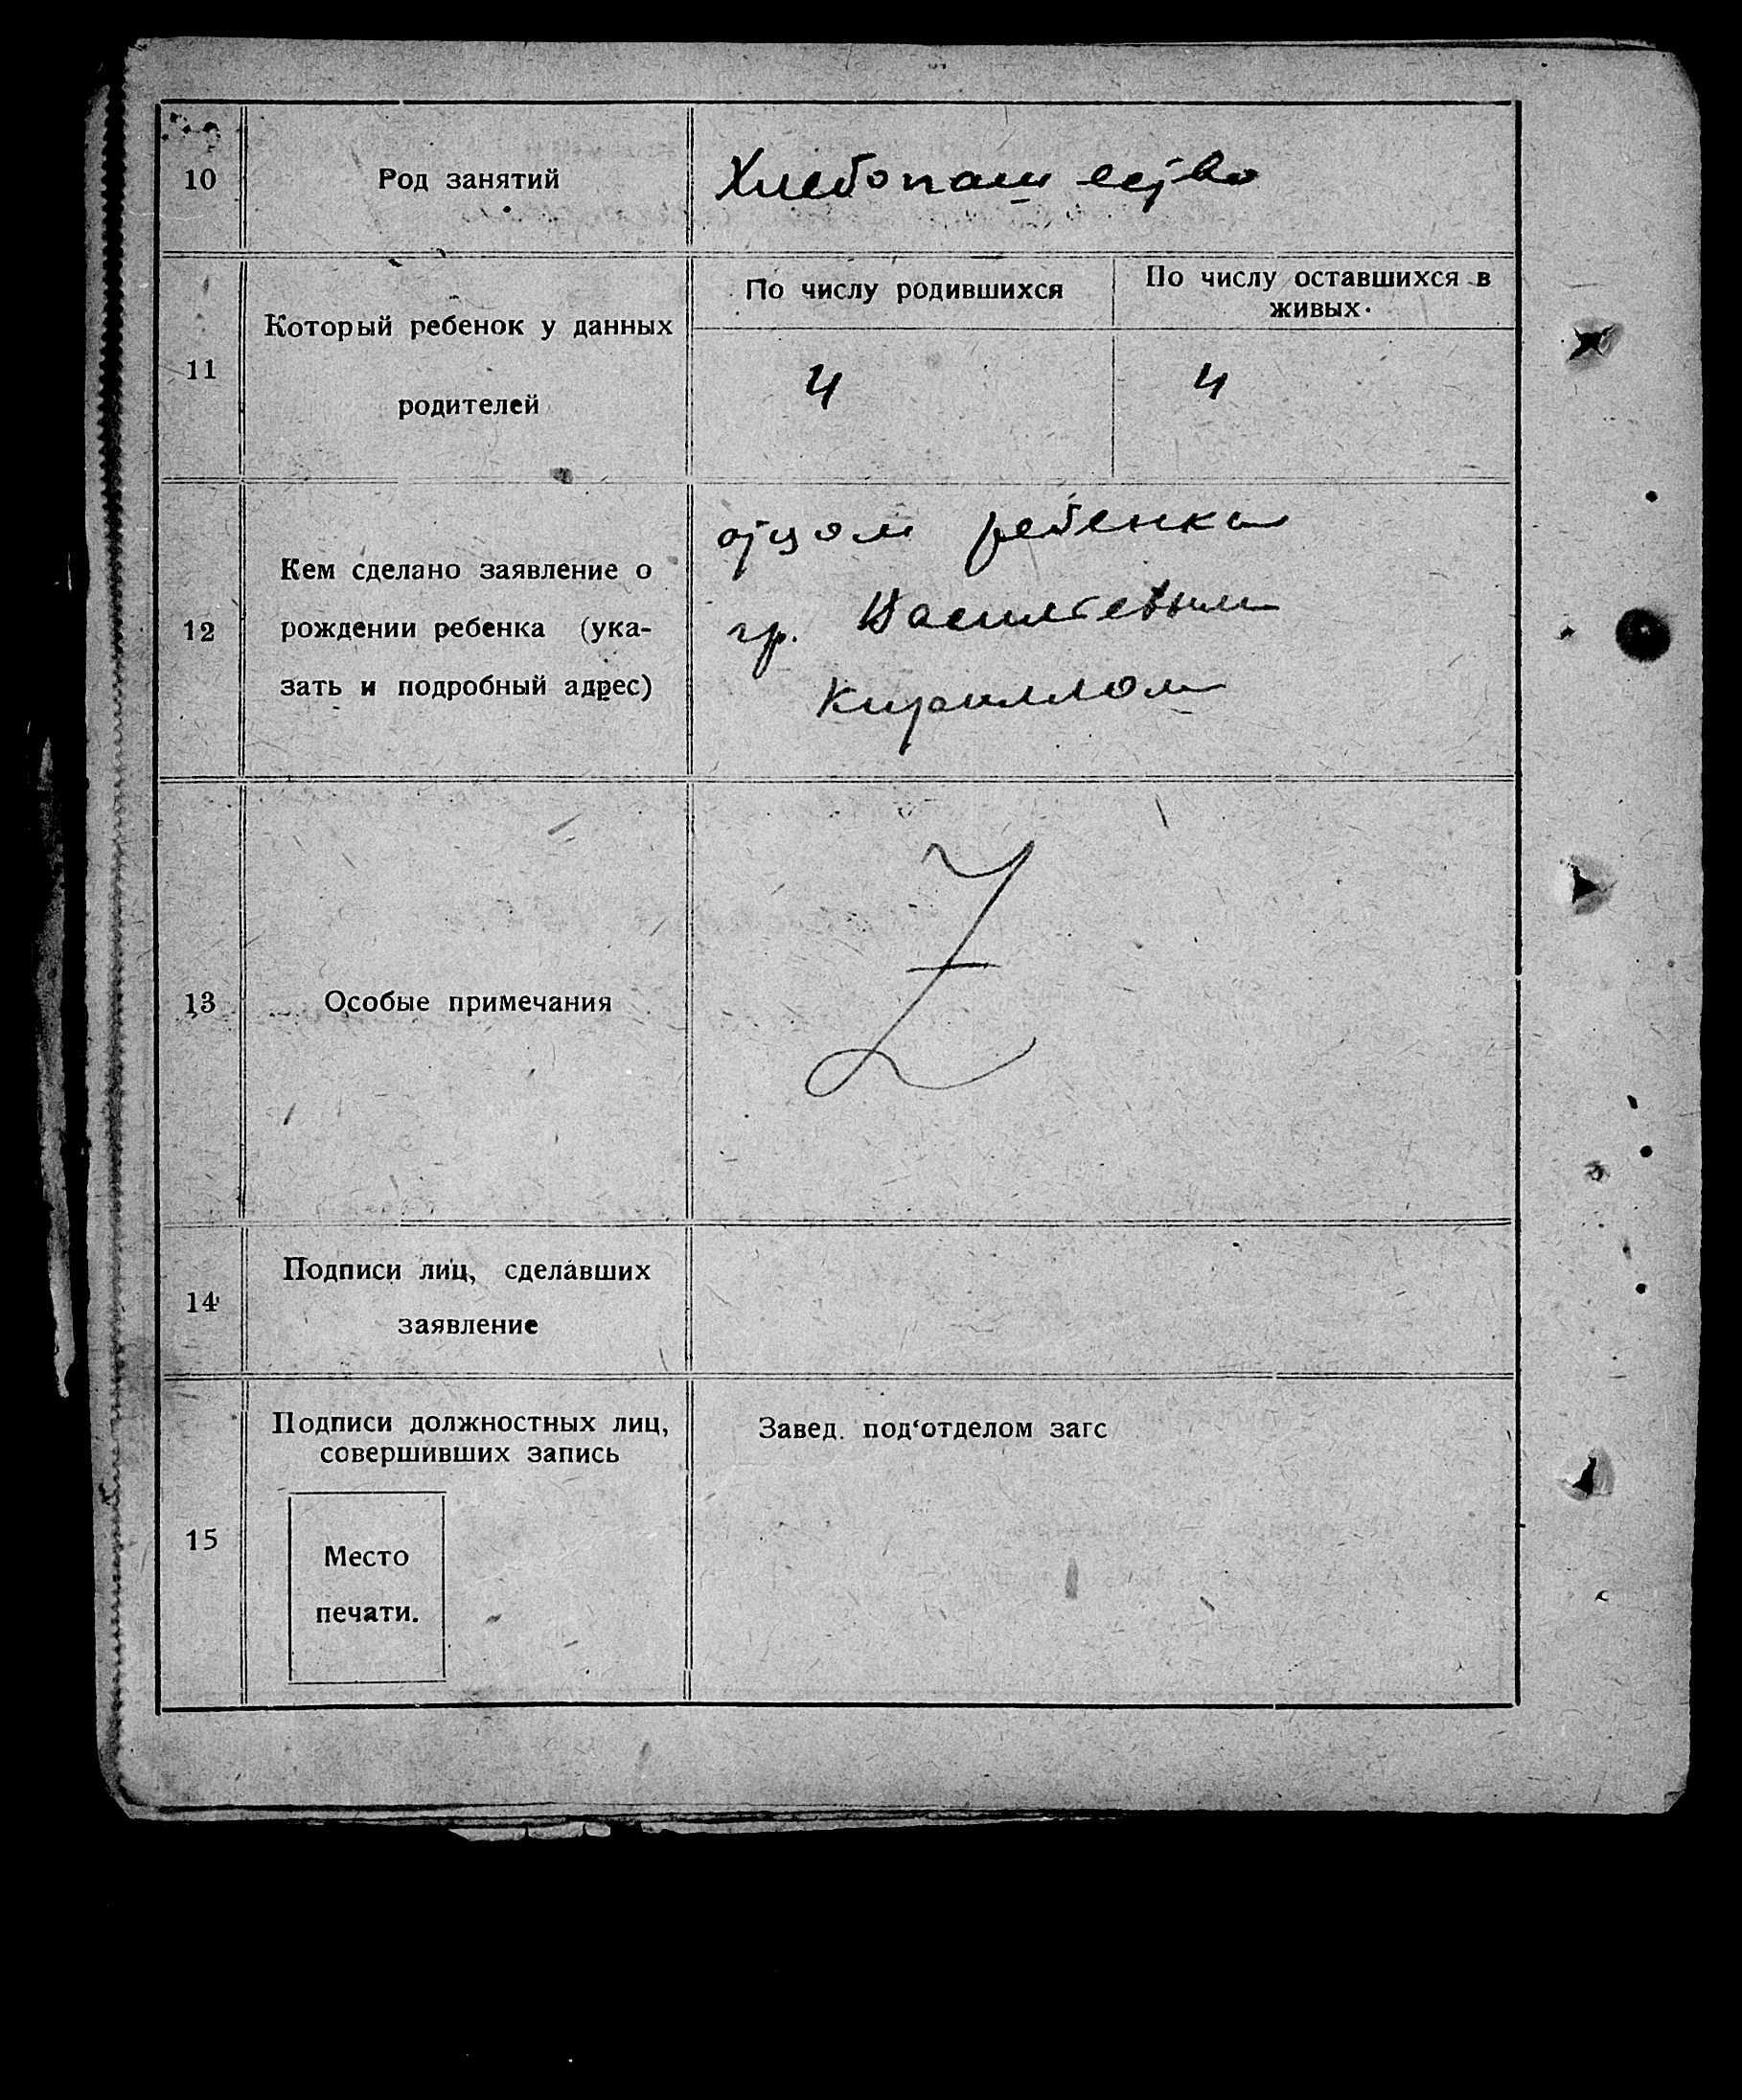 10
Род занятий
Хлебопашество
11
Который ребенок у данных
родителей
По числу родившихся
По числу оставшихся в
живых.
4
4
12
Кем сделано заявление о
рождении ребенка (ука-
зать и подробный адрес)
отцом ребенка
гр. Васильевым
Кириллом
13
Особые примечания
Z
14
Подписи лиц, сделавших
заявление
15
Подписи должностных лиц,
совершивших запись
Место
печати.
Завед. под‘отделом загс